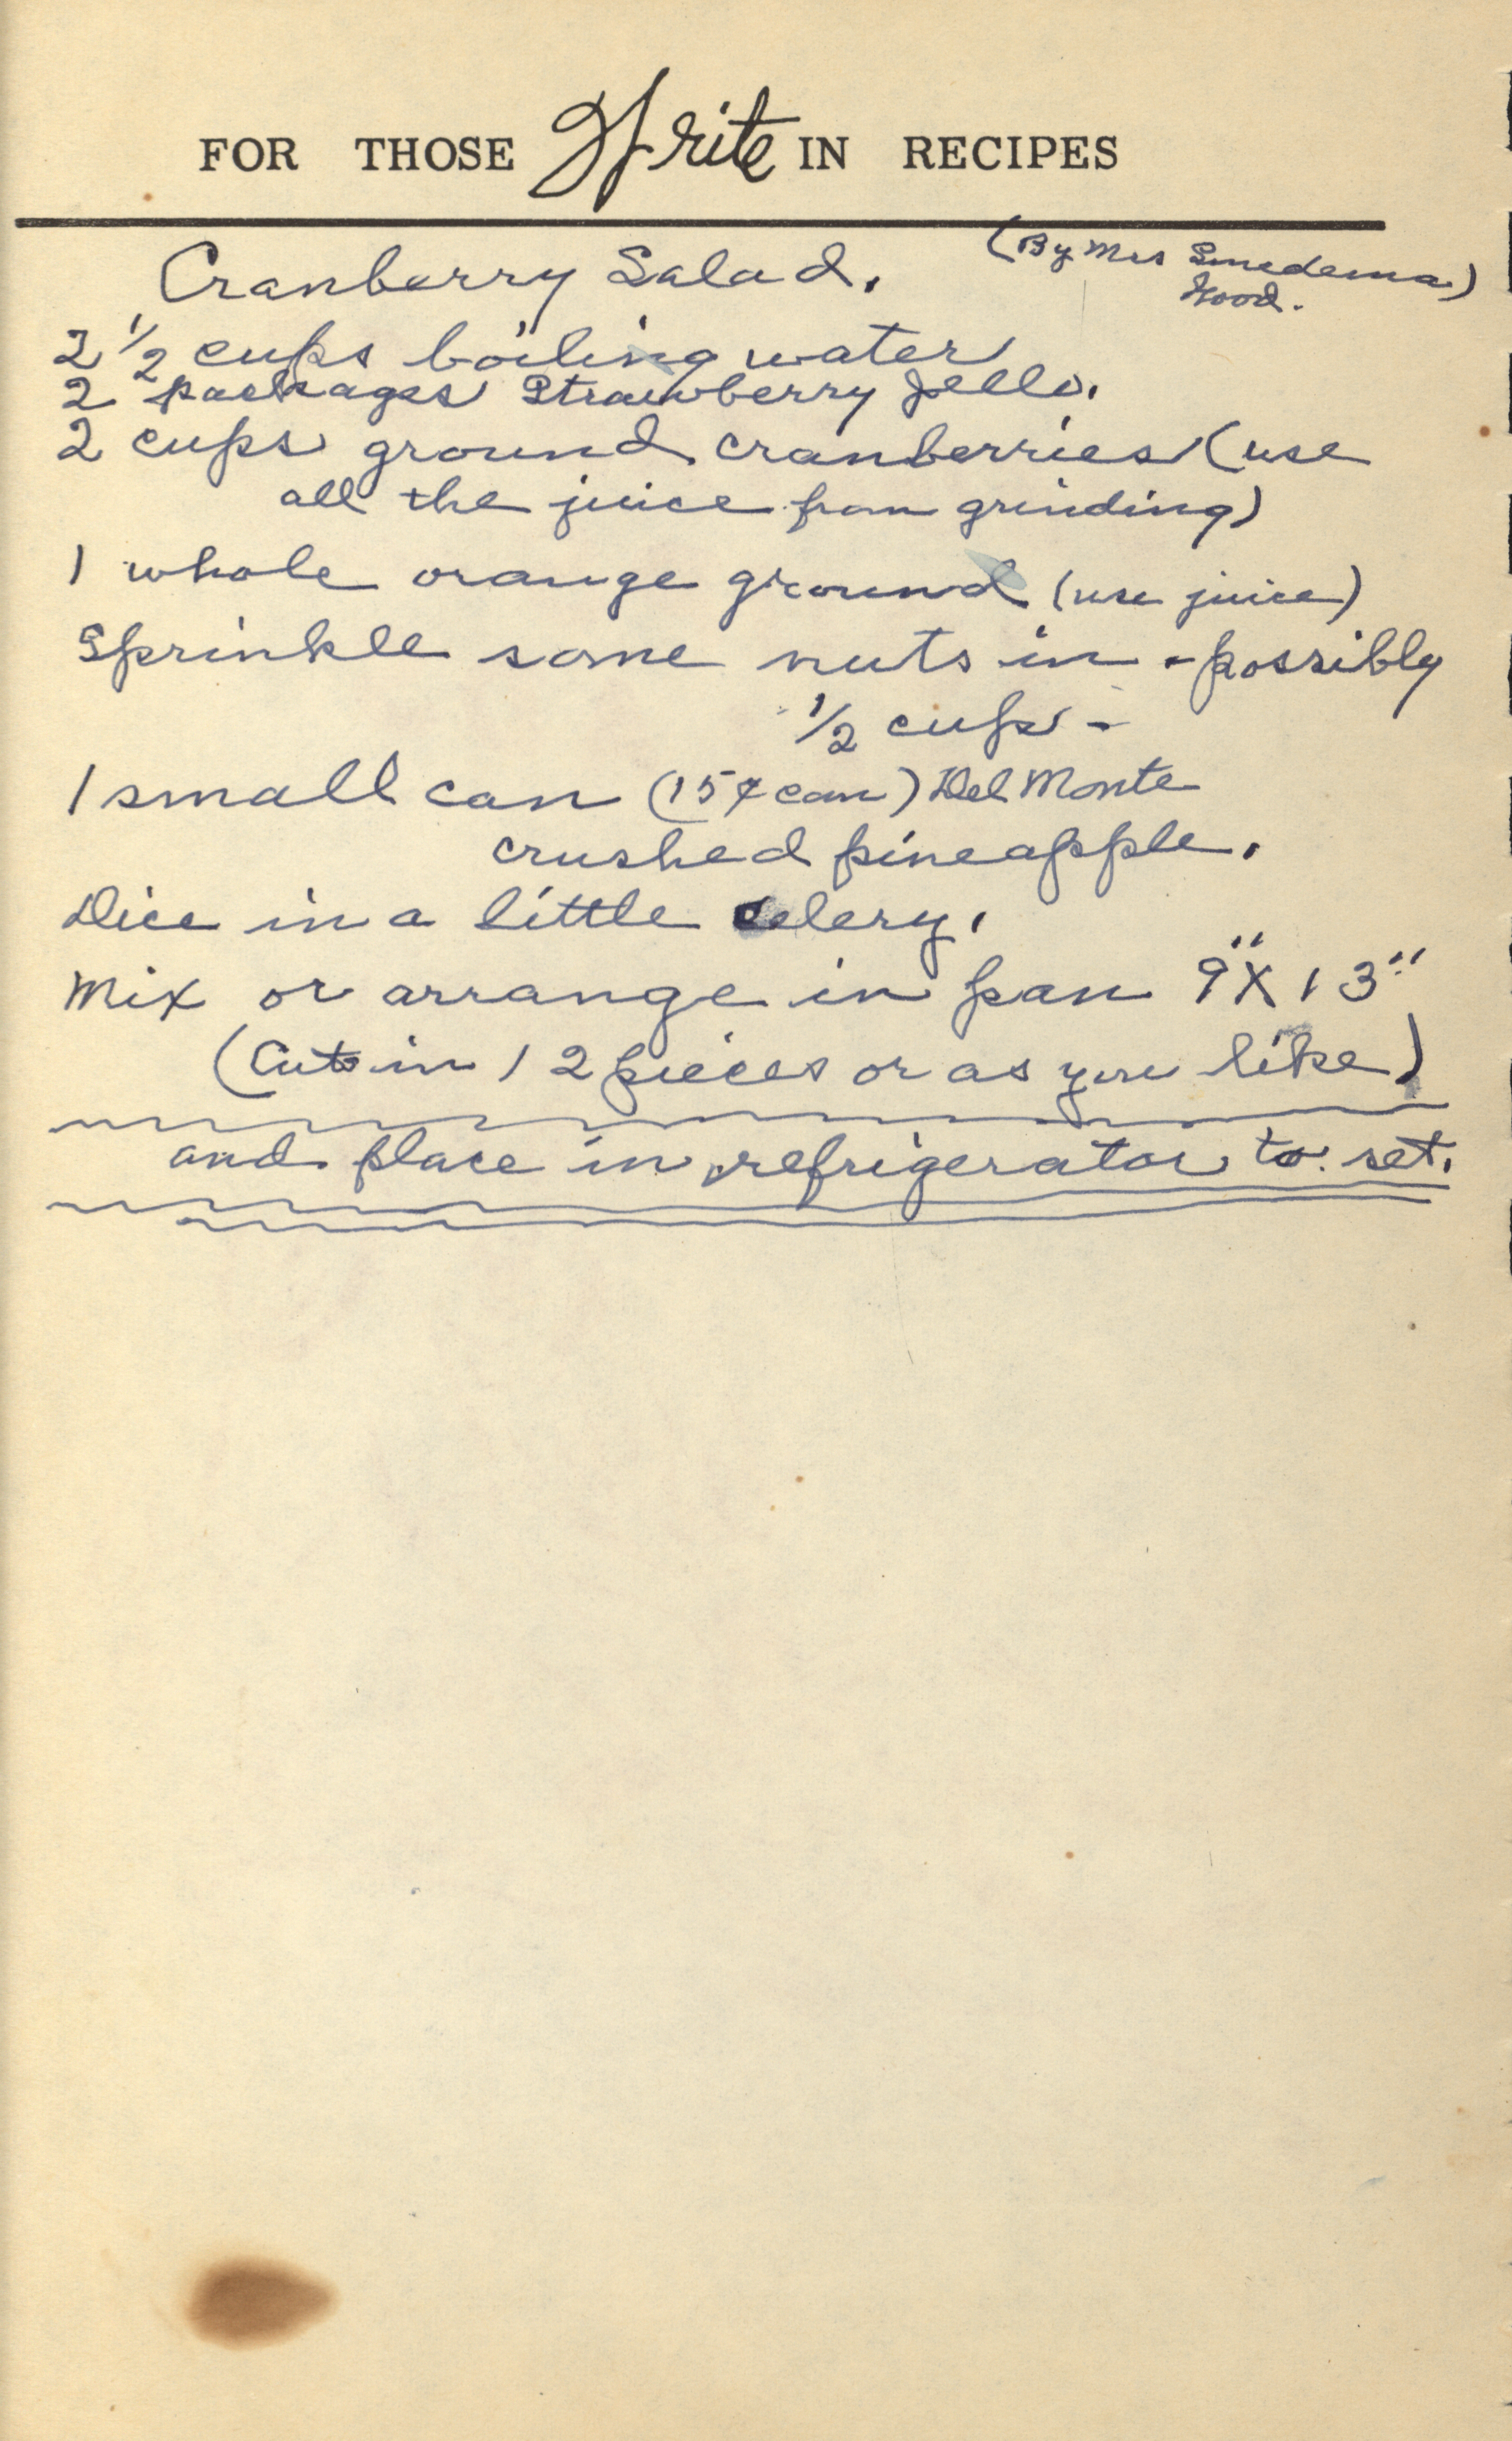 FOR THOSE Write IN RECIPES
Cranberry Salad. (By Mrs Smedema)
Good.
2 1/2 cups boiling water
2 packages Strawberry Jello.
2 cups ground cranberries (use
all the juice from grinding)
1 whole orange ground (use juice)
Sprinkle some nuts in - possibly
1/2 cup -
1 small can (15¢ can) Del Monte
crushed pineapple.
Dice in a little celery.
Mix or arrange in pan 9" X 13"
(Cut in 12 pieces or as you like)
and place in refrigerator to set.